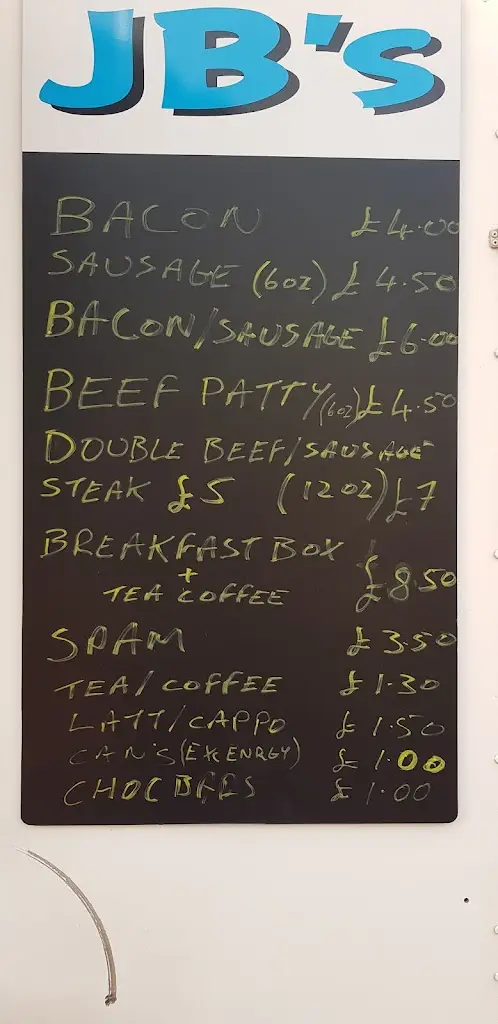 JB's
BACON £4.00
SAUSAGE (6oz) £4.50
BACON/SAUSAGE £6.00
BEEF PATTY (6oz) £4.50
DOUBLE BEEF/SAUSAGE
STEAK £5 (12oz) £7
BREAKFAST BOX
+ £8.50
TEA COFFEE
SPAM £3.50
TEA/COFFEE £1.30
LATT/CAPPO £1.50
CAN'S (EXC ENRGY) £1.00
CHOC BARS £1.00